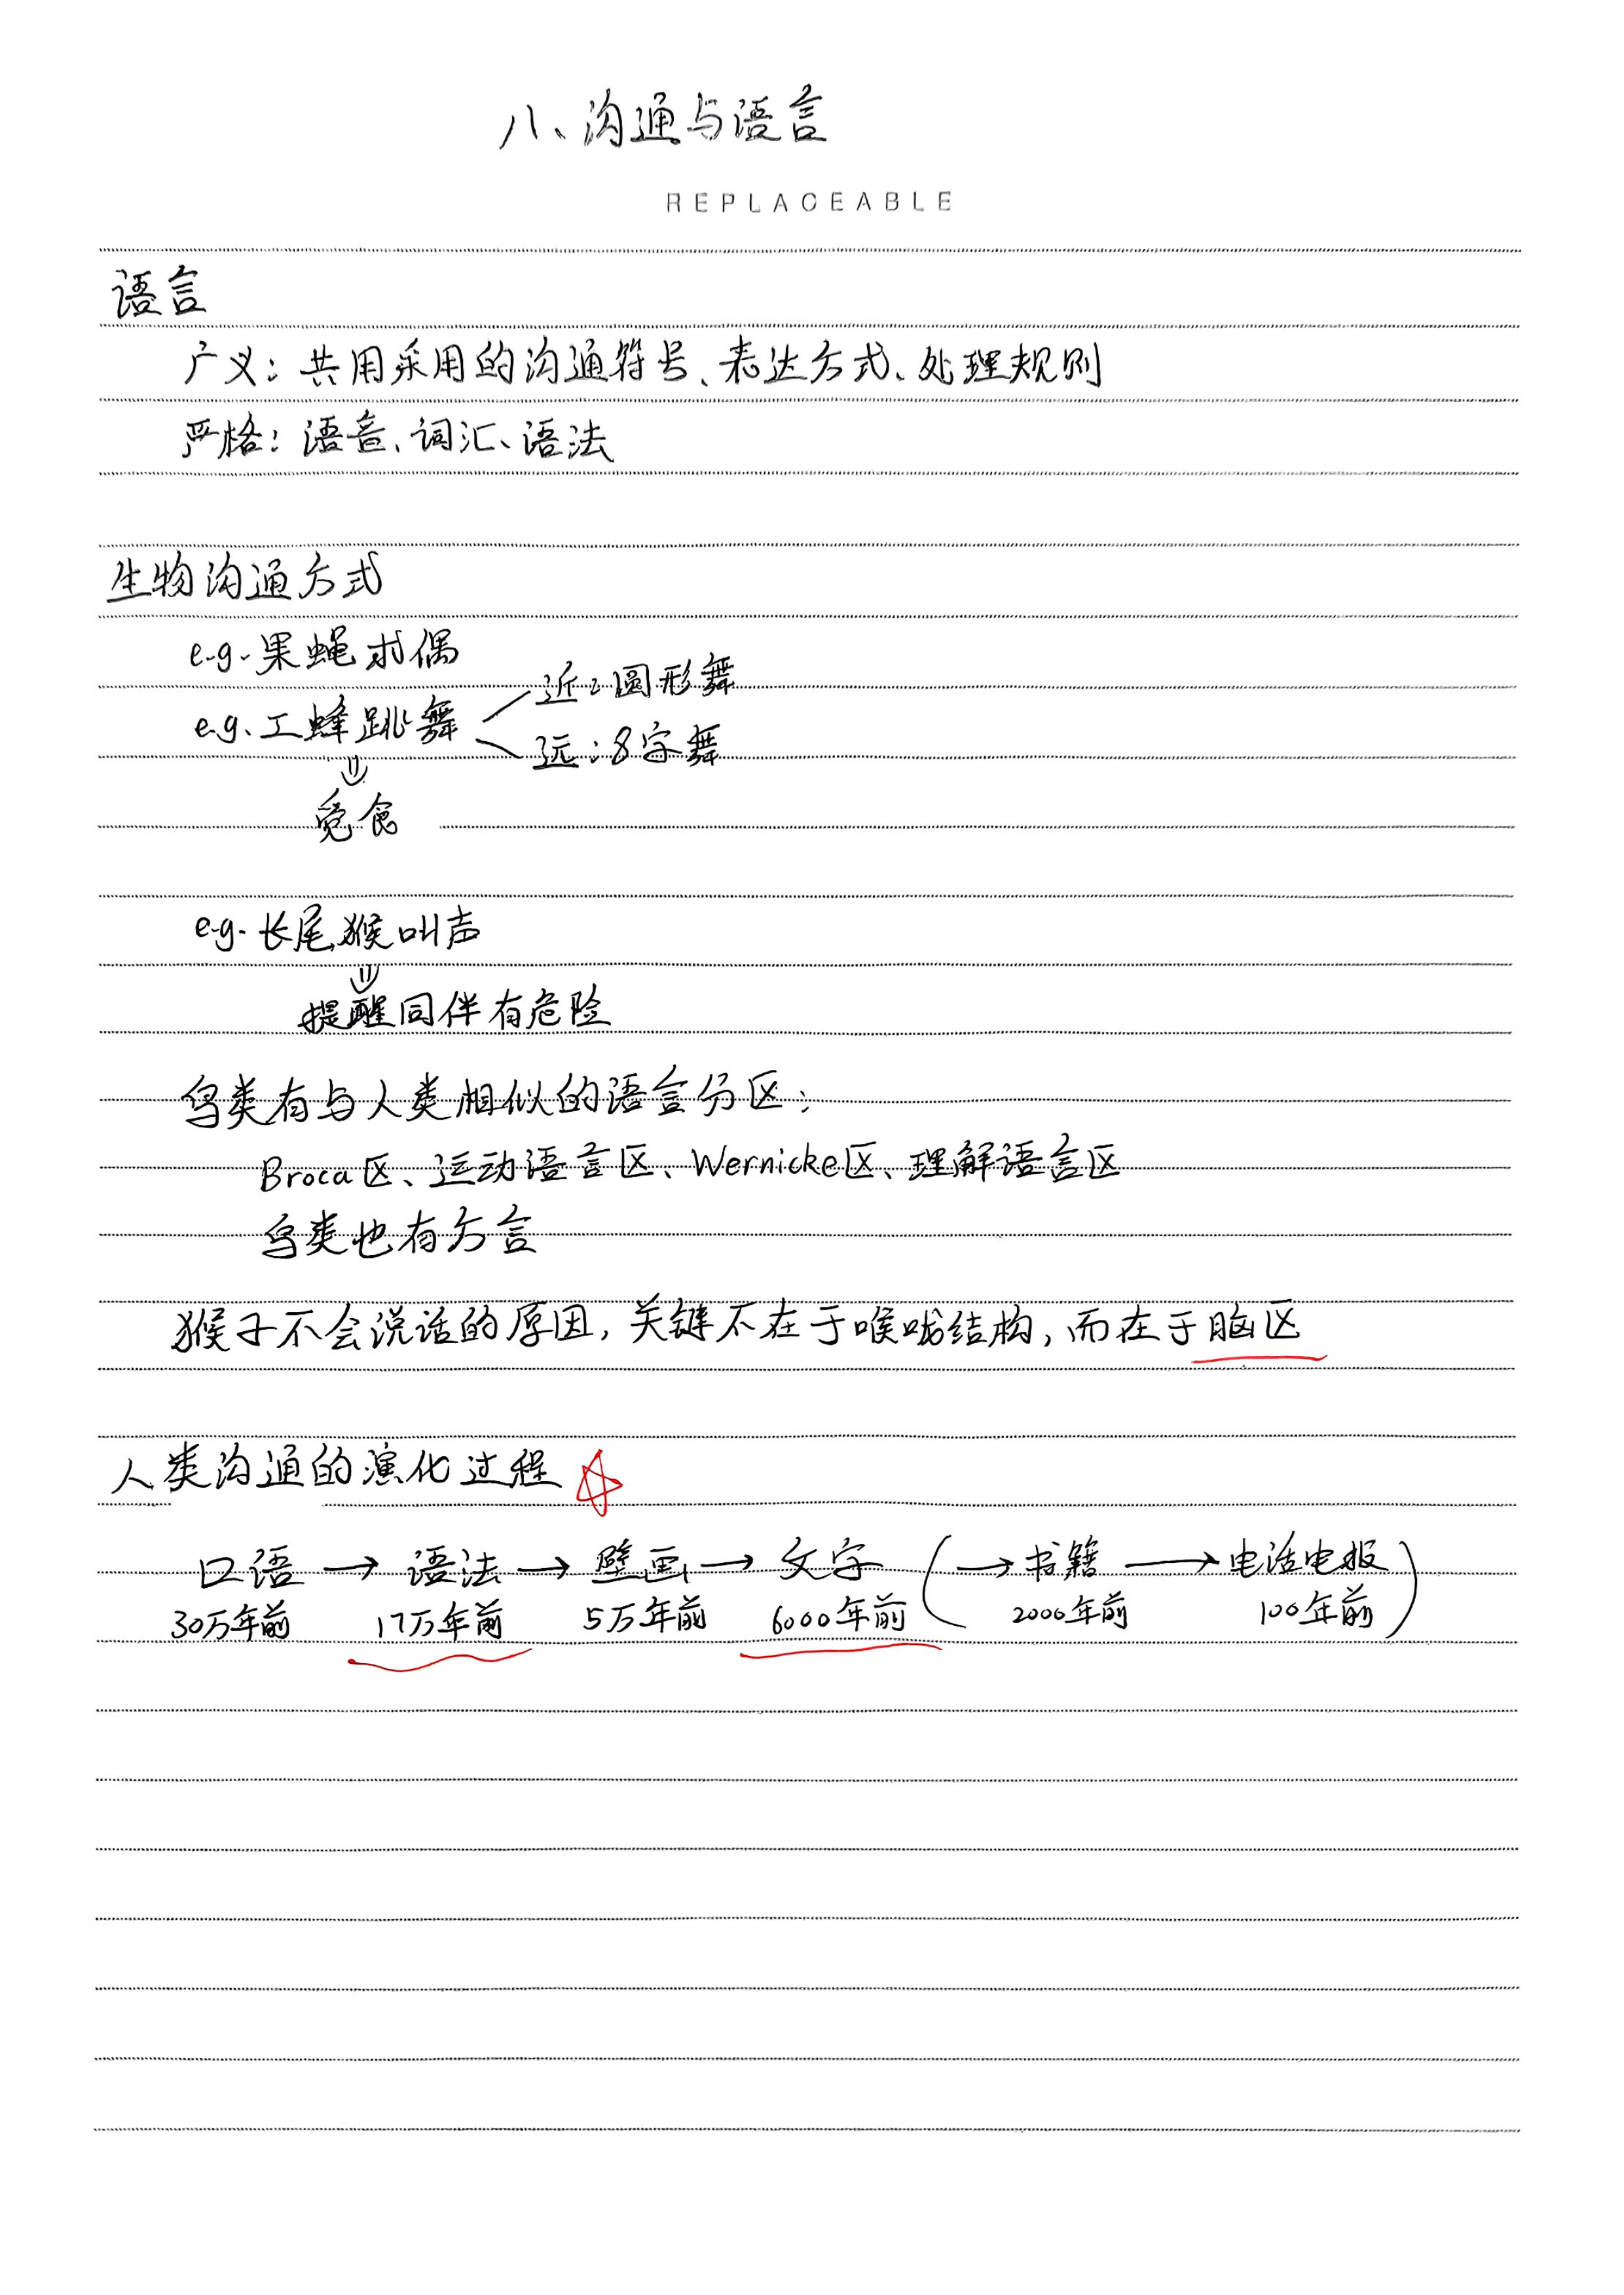 八、沟通与语言
REPLACEABLE
语言
广义：共用采用的沟通符号、表达方式、处理规则
严格：语音、词汇、语法
生物沟通方式
e.g.果蝇求偶
近：圆形舞
e.g.工蜂跳舞
远：8字舞
⇓
觅食
e.g.长尾猴叫声
⇓
提醒同伴有危险
鸟类有与人类相似的语言分区：
Broca区、运动语言区、Wernicke区、理解语言区
鸟类也有方言
猴子不会说话的原因，关键不在于喉咙结构，而在于脑区
人类沟通的演化过程 ☆
口语 → 语法 → 壁画 → 文字 (→ 书籍 → 电话电报)
30万年前 17万年前 5万年前 6000年前 2000年前 100年前